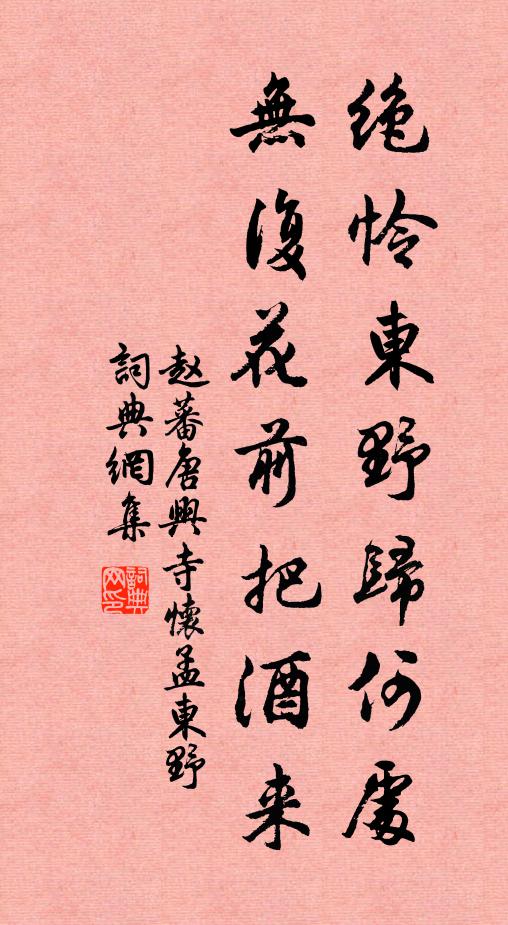 絶怜東野歸何處
無復花前把酒来
赵蕃唐興寺懷孟東野
詞典網集
詞典网印